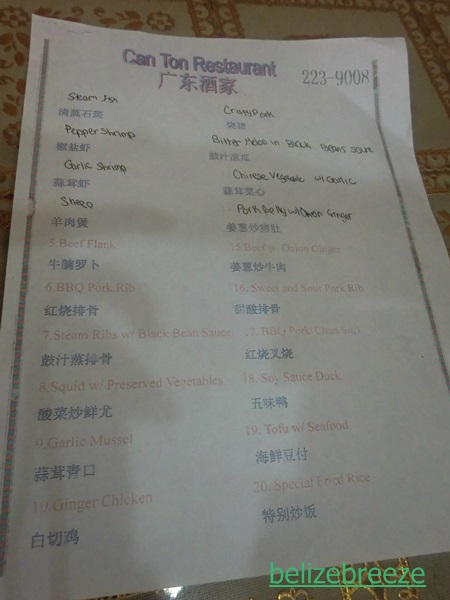 Can Ton Restaurant
广东酒家
223-9008
Steam fish
清蒸石斑
Pepper Shrimp
椒盐虾
Garlic Shrimp
蒜茸虾
羊肉煲
5.Beef Flank
牛腩罗卜
6.BBQ Pork Rib
红烧排骨
7.Steam Ribs w/ Black Bean Sauce
鼓汁蒸排骨
8.Squid w/ Preserved Vegetables
酸菜炒鲜尤
9.Garlic Mussel
蒜茸青口
10.Ginger Chicken
白切鸡
Crispy Pork
烧腩
Bitter Melon in Black Beans Sauce
鼓汁凉瓜
Chinese Vegetable w/ Garlic
蒜茸菜心
Pork Belly w/ Onion Ginger
姜葱炒猪肚
15.Beef w/ Onion Ginger
姜葱炒牛肉
16. Sweet and Sour Pork Rib
甜酸排骨
17. BBQ Pork/ Char Siu
红烧叉烧
18. Soy Sauce Duck
五味鸭
19. Tofu w/ Seafood
海鲜豆付
20. Special Fried Rice
特别炒饭
belizebreeze